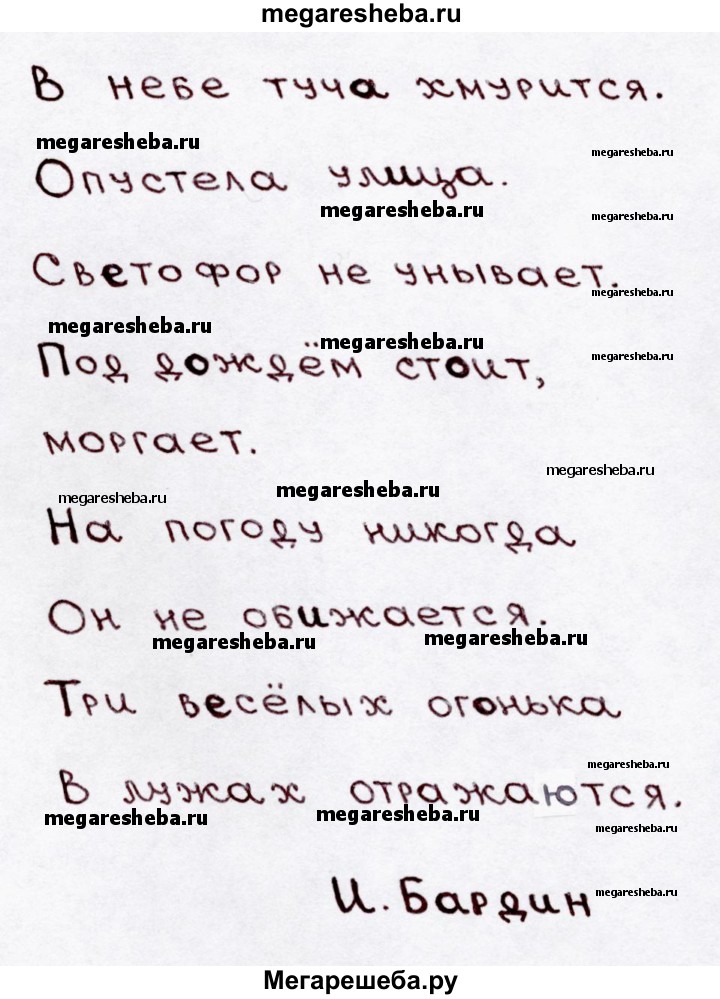 megaresheba.ru
В небе туча хмурится.
megaresheba.ru
megaresheba.ru
Опустела улица.
megaresheba.ru
megaresheba.ru
Светофор не унывает.
megaresheba.ru
megaresheba.ru
megaresheba.ru
megaresheba.ru
Под дождём стоит,
моргает.
megaresheba.ru
megaresheba.ru
megaresheba.ru
На погоду никогда
Он не обижается.
megaresheba.ru
megaresheba.ru
Три весёлых огонька
megaresheba.ru
В лужах отражаются.
megaresheba.ru
megaresheba.ru
megaresheba.ru
И. Бардин
megaresheba.ru
Мегарешеба.ру